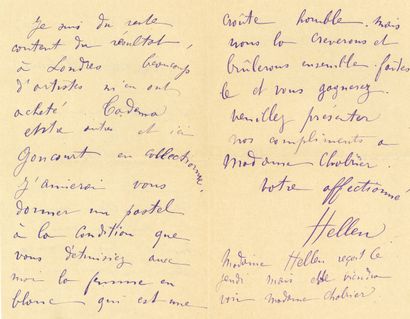 Je suis du reste
content du résultat,
à Londres beaucoup
d'artistes m'en ont
acheté. Tadema
entre autres et ici
Goncourt en collectionne.
J'aimerai vous
donner un pastel
à la condition que
vous détruisiez avec
moi la femme en
blanc qui est une
croûte horrible. mais
nous la creverons et
brûlerons ensemble. faites
le et vous gagnerez.
veuillez presenter
nos compliments a
Madame Chabrier.
votre affectionné
Helleu
Madame Helleu reçoit le
jeudi mais elle viendra
voir madame Chabrier